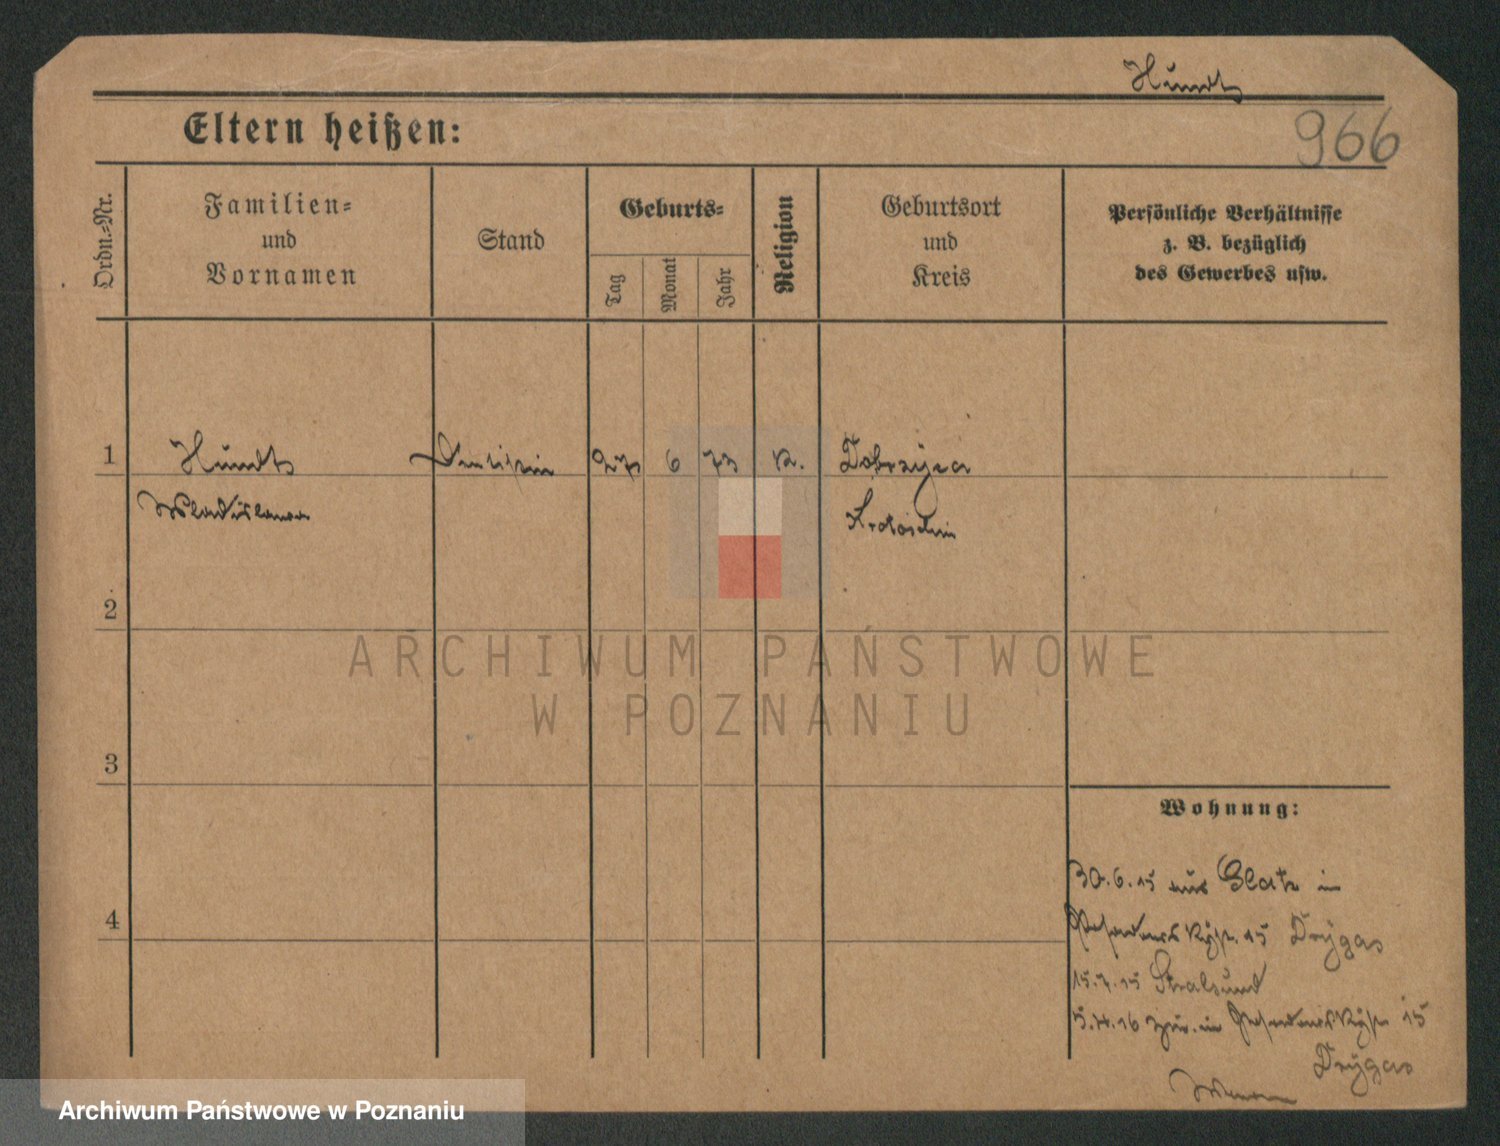 Hundt
966
Eltern heißen:
Ordn.-Nr.
Familien-
und
Vornamen
Stand
Geburts-
Tag
Monat
Jahr
Religion
Geburtsort
und
Kreis
Persönliche Verhältnisse
z. B. bezüglich
des Gewerbes usw.
1
Hundt
27
6
73
K.
Dobrzyca
Wladislawa
Krotoschin
2
ARCHIWUM PAŃSTWOWE
W POZNANIU
3
Wohnung:
4
30.6.15 aus Glatz in
15 Drygas
15.7.15 Stralsund
5.4.16 zur. in 15
Drygas
Archiwum Państwowe w Poznaniu